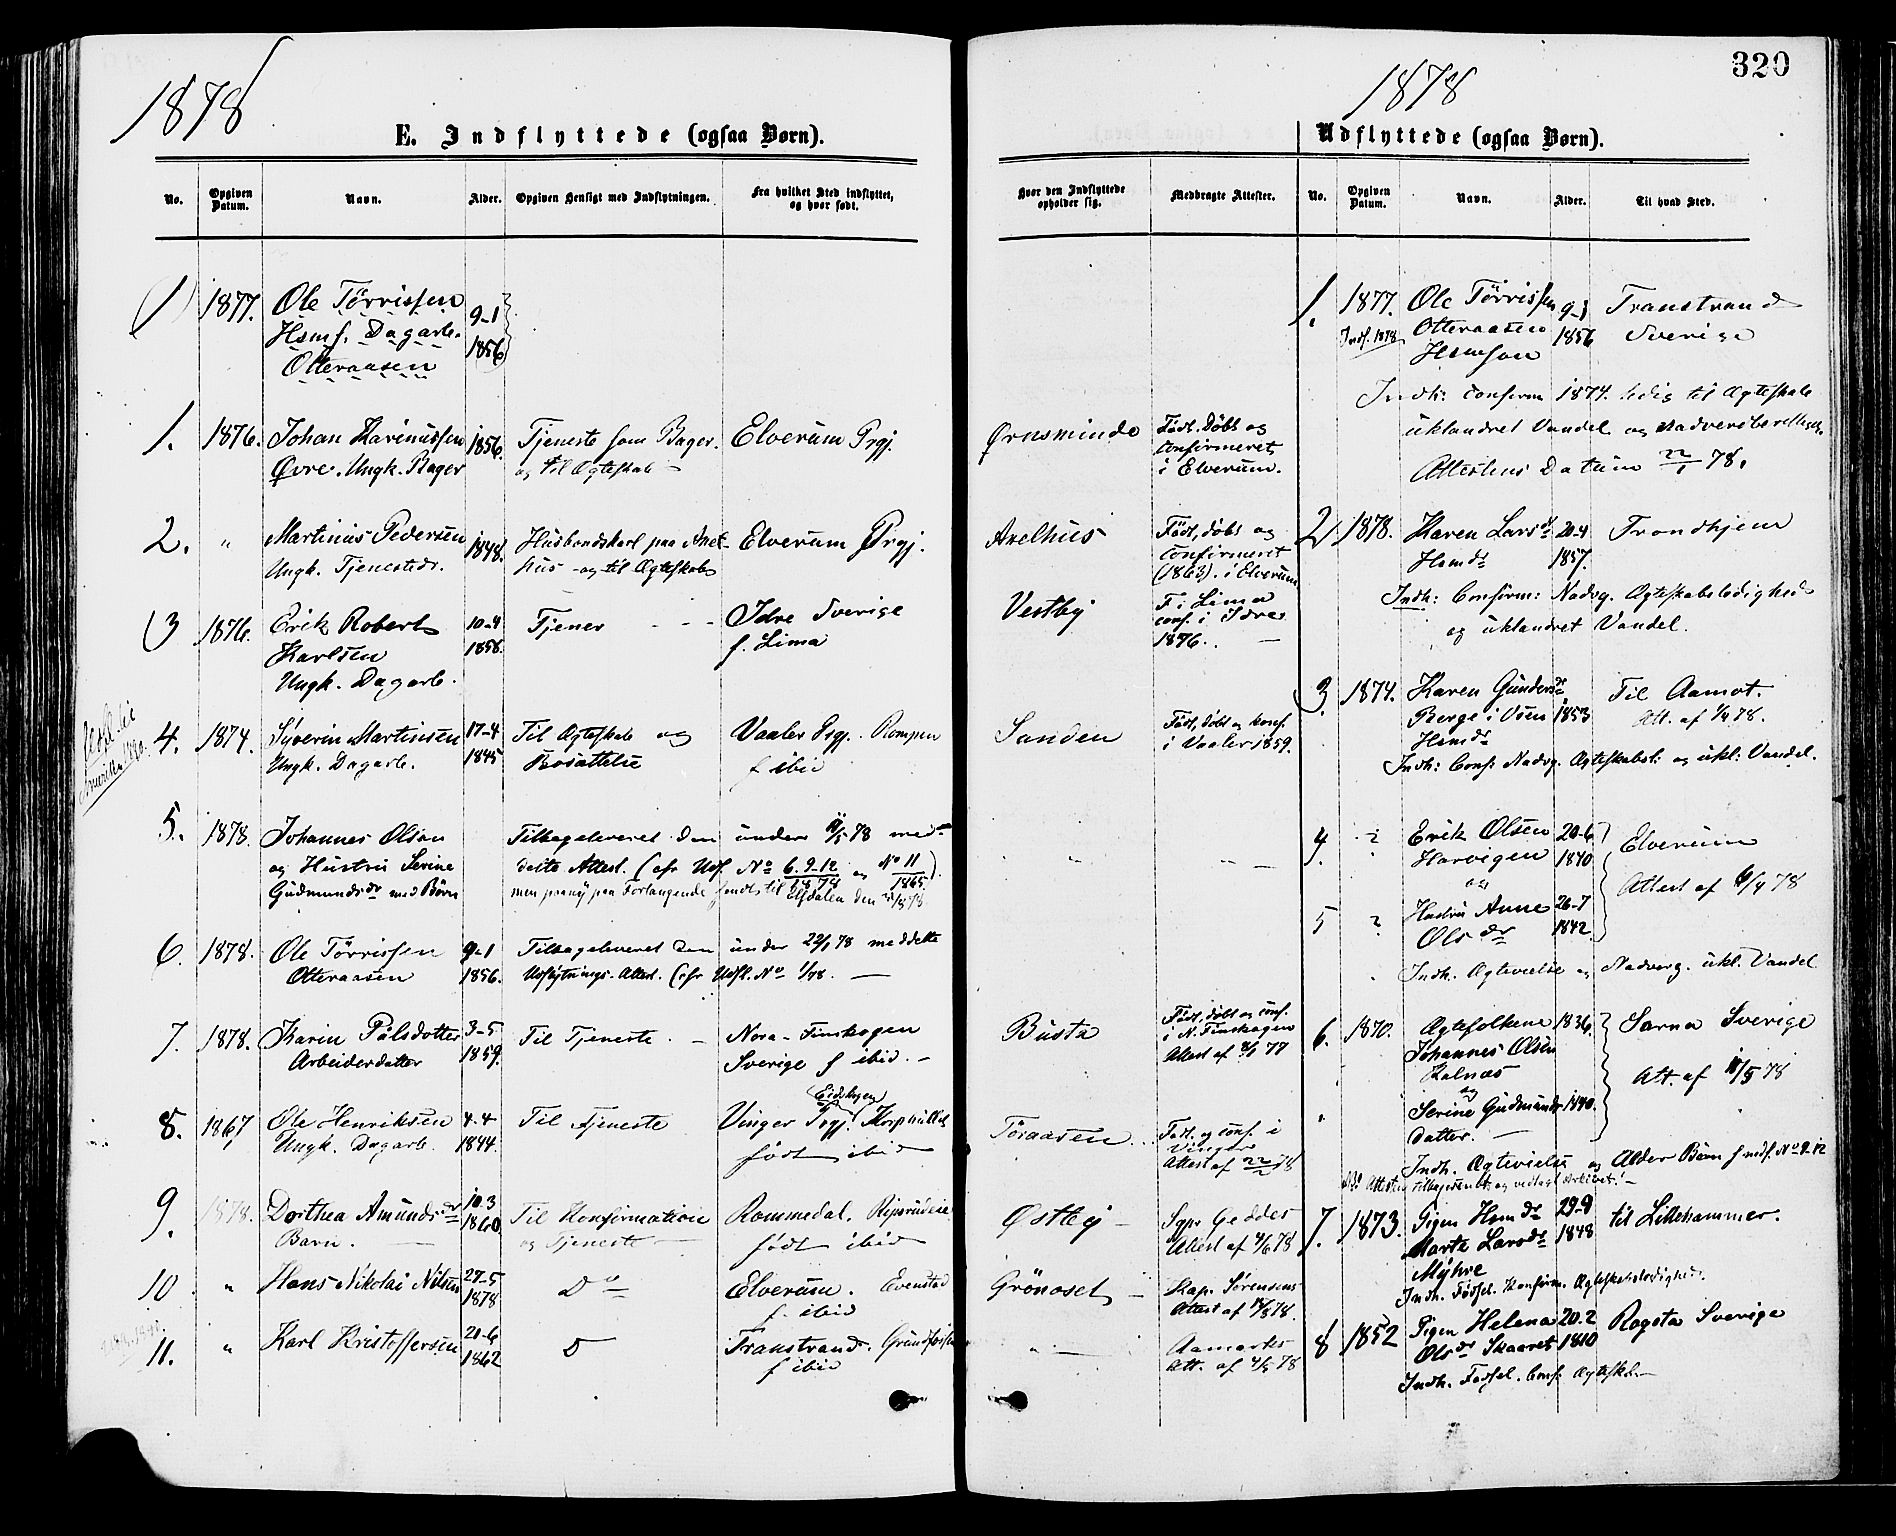 1878
E. Indflyttede (ogsaa Børn).
No.
Opgiven Datum.
Navn.
Alder.
Opgiven Hensigt med Indflytningen.
Fra hvilket Sted indflyttet, og hvor født.
(1) 1877. Ole Törrissen 9-1
Hsmf. Dagarb. 1856
Otteraasen
1. 1876. Johan Karinussen 1856. Tjeneste som Bager. Elverum Prgj.
Øvre. Ungk. Bager og til Ægteskab
2. " Martinius Pedersen 1848. Huusbondskarl paa Axel- Elverum Prgj.
Ungk. Tjenestedr. hus - og til Ægteskab
(3 1876. Erik Robert 10-4 Tjener Idre Sverige
Karlsen 1858. f. Lima
Ungk. Dagarb.
4. 1874. Syverin Martinsen 17-4 Til Ægteskab og Vaaler Prgj. Rompen
Ungk. Dagarb. 1845 Bosættelse f ibid
5. 1878. Johannes Olsen Tilbageleveret den under 11/5 78 med-
og Hustru Serine delte Attest. (cfr Udf. No 6. 9-12 1878 og No 11 1865).
Gudmundsdr med Børn men paany paa Forlangende sendt til Elfdalen den
6. 1878. Ole Törrissen 9-1 Tilbageleveret den under 22/1 78 meddelte
Otteraasen 1856. Udflytnings-Attest. (cfr Udfl. No 1/78.
7. 1878. Karin Pålsdotter 3-5 Til Tjeneste. Nora-Finskogen
Arbeiderdatter 1859. Sverige f ibid.
8. 1867 Ole Henriksen 4-4 Til Tjeneste Vinger Prgj.
Ungk. Dagarb. 1844. født ibid
9. 1878. Dorthea Amundsdr 10-3 Til Konfirmation Rommedal.
Barn. 1860. og Tjeneste født ibid
10 " Hans Nikolai Nilsen 27-5 Do Elverum. Evenstad
1878 f ibid
11. " Karl Kristoffersen 20-6 D Transtrand.
1862 f ibid
1878
320
Udflyttede (ogsaa Børn).
Hvor den Indflyttede opholder sig.
Medbragte Attester.
No.
Opgiven Datum.
Navn.
Alder.
Til hvad Sted.
Ørnsminde Født. Døbt og
Confirmeret
i Elverum.
Axelhus Født, døbt og
Confirmeret
(1863). i Elverum
Vestby F. i Lima
conf. i Idre
1876.
Sanden Født, døbt og konf.
i Vaaler 1859.
Busta Født, døbt og conf.
i N. Finskogen
Attest af 8/1 77
Töraasen Født. og conf. i
Vinger
Attest af 22/2 78
Østby Sgpr Geddes
Attest af 4/6 78
Grönoset Kap. Sørensens
Attest af 14/8 78.
" Aamarks
Att. af 4/8 78
1. 1877. Ole Törrissen 9-1 Transtrand
Indf. 1878 Otteraasen 1856 Sverige
Hsmsøn
Indh: Confirm 1874. ledig til Ægteskab
uklandret Vandel og Nadverdberettiget.
Attestens Datum 22/1 78.
2 1878. Karen Larsdr 20-4 Trondhjem
Hsmdr 1857.
Indh: Confirm: Nadvg. Ægteskabsledighed
og uklandret Vandel.
3. 1874. Karen Gundersdr Til Aamot.
Berge i Osen 1853 Att. af 1/4 78.
Hsmdr
Indh: Conf: Nadvg. Ægteskabsl: og ukl: Vandel.
4 ? Erik Olsen 20-6 Elverum
Harvigen 1840
og Attest af 6/4 78
5 ? Hustru Anne 26-7
Olsdr 1842.
Indh. Ægtevielse og Nadverg. ukl. Vandel
6. 1870. Ægtefolkene 1836 Særna Sverige
Johannes Olsen
Kalnæs Att. af 11/5 78
og
Serine Gudmunds- 1840.
datter.
Indh. Ægtevielse og Alder Børn f indf. No 9-12
Attesten tilbagesendt og vedlagt Arkivet.
7. 1873. Pigen Hsmdr 29-9 til Lillehammer.
Marte Larsdr 1848
Myhre
Indh. Fødsel. Konfirm. Ægteskabsledighed.
8 1852 Pigen Helena 20.2 Rogsta Sverige
Olsdr Skaaret 1810
Indh. Fødsel. Conf. Ægteskb.